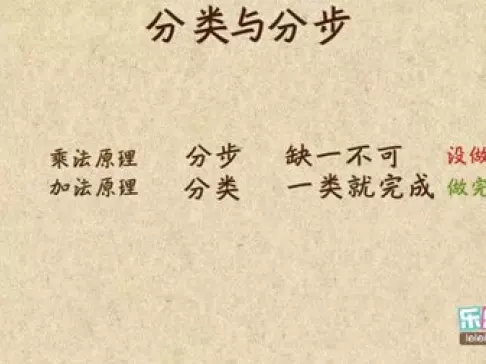 分类与分步
乘法原理 分步 缺一不可 没做
加法原理 分类 一类就完成 做完
乐
lelel